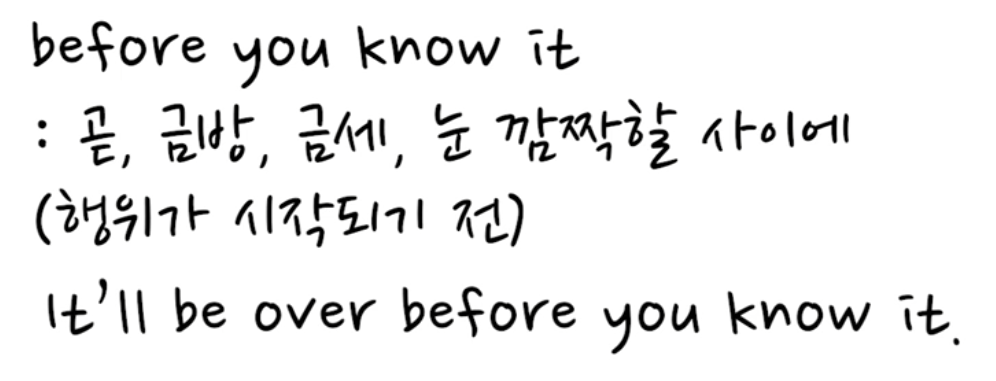 before you know it
: 곧, 금방, 금세, 눈 깜짝할 사이에
(행위가 시작되기 전)
It'll be over before you know it.